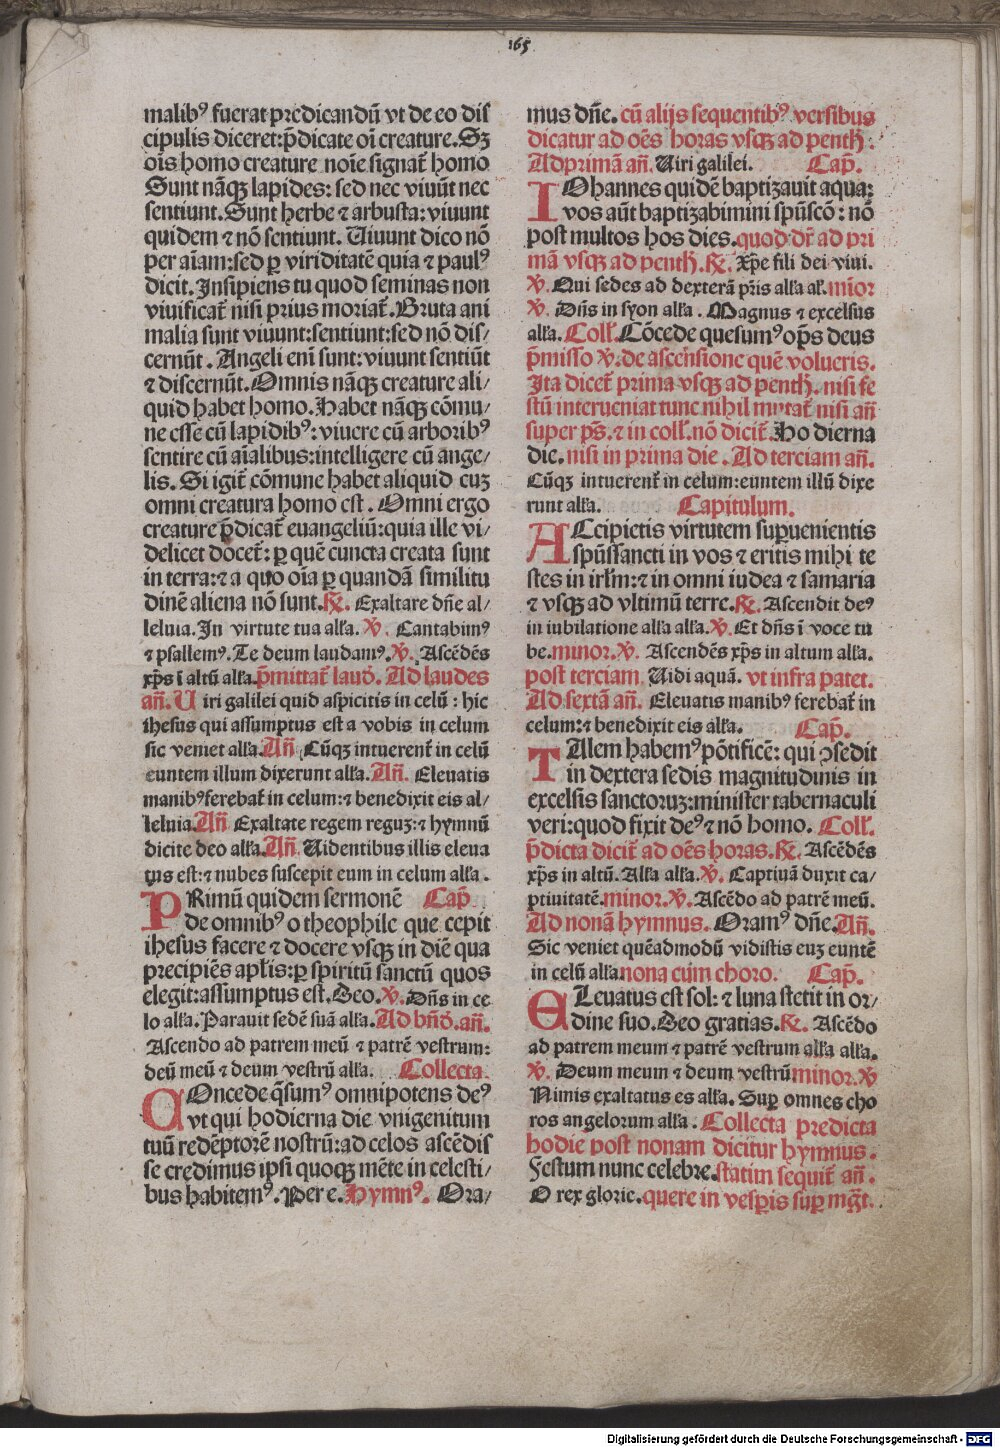 165
malibꝰ fuerat predicandū vt de eo dis
cipulis diceret:p̄dicate oī creature.Sꝫ
oīs homo creature noīe signat̄ homo
Sunt nāqꝫ lapides: sed nec viuūt nec
sentiunt.Sunt herbe ⁊ arbusta: viuunt
quidem ⁊ nō sentiunt. Uiuunt dico nō
per aīam:sed ꝑ viriditatē quia ⁊ paulꝰ
dicit. Insipiens tu quod seminas non
viuificat̄ nisi prius moriat̄. Bruta ani
malia sunt viuunt:sentiunt:sed nō dis/
cernūt. Angeli enī sunt: viuunt sentiūt
⁊ discernūt. Omnis nāqꝫ creature ali/
quid habet homo. Habet nāqꝫ cōmu/
ne esse cū lapidibꝰ: viuere cū arboribꝰ
sentire cū aīalibus:intelligere cū ange/
lis. Si igit̄ cōmune habet aliquid cuꝫ
omni creatura homo est. Omni ergo
creature p̄dicat̄ euangeliū: quia ille vi/
delicet docet̄: ꝑ quē cuncta creata sunt
in terra:⁊ a quo oīa ꝑ quandā similitu
dinē aliena nō sunt. ℟. Exaltare dn̄e al/
leluia. In virtute tua alła. ℣. Cantabimꝰ
⁊ psallemꝰ. Te deum laudamꝰ. ℣. Ascēdēs
xp̄s ī altū alła. p̄mittat̄ laud̄. Ad laudes
añ. Uiri galilei quid aspicitis in celū: hic
ihesus qui assumptus est a vobis in celum
sic veniet alła. Añ Cūqꝫ intuerent̄ in celū
euntem illum dixerunt alła. Añ. Eleuatis
manibꝰ ferebat̄ in celum:⁊ benedixit eis al/
leluia. Añ Exaltate regem reguꝫ:⁊ hymnū
dicite deo alła. Añ Uidentibus illis eleua
tus est:⁊ nubes suscepit eum in celum alła.
PRimū quidem sermonē Cap̄
de omnibꝰ o theophile que cepit
ihesus facere ⁊ docere vsqꝫ in diē qua
precipiēs apłis:ꝑ spiritū sanctū quos
elegit:assumptus est. Deo. ℣. Dn̄s in ce
lo alła. Parauit sedē suā alła. Ad bn̄d̄. añ.
Ascendo ad patrem meū ⁊ patrē vestrum:
deū meū ⁊ deum vestrū alła. Collecta
COncede q̄sumꝰ omnipotens deꝰ
vt qui hodierna die vnigenitum
tuū redēptorē nostrū:ad celos ascēdis
se credimus ipsi quoqꝫ mēte in celesti/
bus habitemꝰ. Per e. Hymnꝰ. Ora/
mus dn̄e. cū alijs sequentibꝰ versibus
dicatur ad oēs horas vsqꝫ ad penth̄.
Ad primā añ. Uiri galilei. Cap̄.
IOhannes quidē baptizauit aqua:
vos aūt baptizabimini spūscō: nō
post multos hos dies. quod dr̄ ad pri
mā vsqꝫ ad penth̄. ℟. Xp̄e fili dei viui.
℣. Qui sedes ad dexterā pr̄is alła ał. mīor
℣. Dn̄s in syon alła. Magnus ⁊ excelsus
alła. Coll̄. Cōcede quesumꝰ op̄s deus
p̄misso ℣. de ascensione quē volueris.
Ita dicet̄ prima vsqꝫ ad penth̄. nisi fe
stū interueniat tunc nihil mutat̄ nisi añ
super ps̄. ⁊ in coll̄. nō dicit̄. Ho dierna
die. nisi in prima die. Ad terciam añ.
Cūqꝫ intuerent̄ in celum:euntem illū dixe
runt alła. Capitulum.
ACcipietis virtutem suꝑuenientis
spūssancti in vos ⁊ eritis mihi te
stes in irłm:⁊ in omni iudea ⁊ samaria
⁊ vsqꝫ ad vltimū terre. ℟. Ascendit deꝰ
in iubilatione alła alła. ℣. Et dn̄s ī voce tu
be. minor. ℣. Ascendēs xp̄s in altum alła.
post terciam Uidi aquā. vt infra patet.
Ad sextā añ. Eleuatis manibꝰ ferebat̄ in
celum:⁊ benedixit eis alła. Cap̄.
TAlem habemꝰ pōtificē: qui ꝯsedit
in dextera sedis magnitudinis in
excelsis sanctoruꝫ:minister tabernaculi
veri:quod fixit deꝰ ⁊ nō homo. Coll̄.
p̄dicta dicit̄ ad oēs horas. ℟. Ascēdēs
xp̄s in altū. Alła alła. ℣. Captiuā duxit ca/
ptiuitatē. minor. ℣. Ascēdo ad patrē meū.
Ad nonā hymnus. Oramꝰ dn̄e. Añ.
Sic veniet quēadmodū vidistis euꝫ euntē
in celū alła. nona cum choro. Cap̄.
ELeuatus est sol: ⁊ luna stetit in or/
dine suo. Deo gratias. ℟. Ascēdo
ad patrem meum ⁊ patrē vestrum alła alła.
℣. Deum meum ⁊ deum vestrū minor. ℣
Nimis exaltatus es alła. Suꝑ omnes cho
ros angelorum alła. Collecta predicta
hodie post nonam dicitur hymnus.
Festum nunc celebre. statim sequit̄ añ.
O rex glorie. quere in vesꝑis suꝑ mg̅t̄.
Digitalisierung gefördert durch die Deutsche Forschungsgemeinschaft - DFG